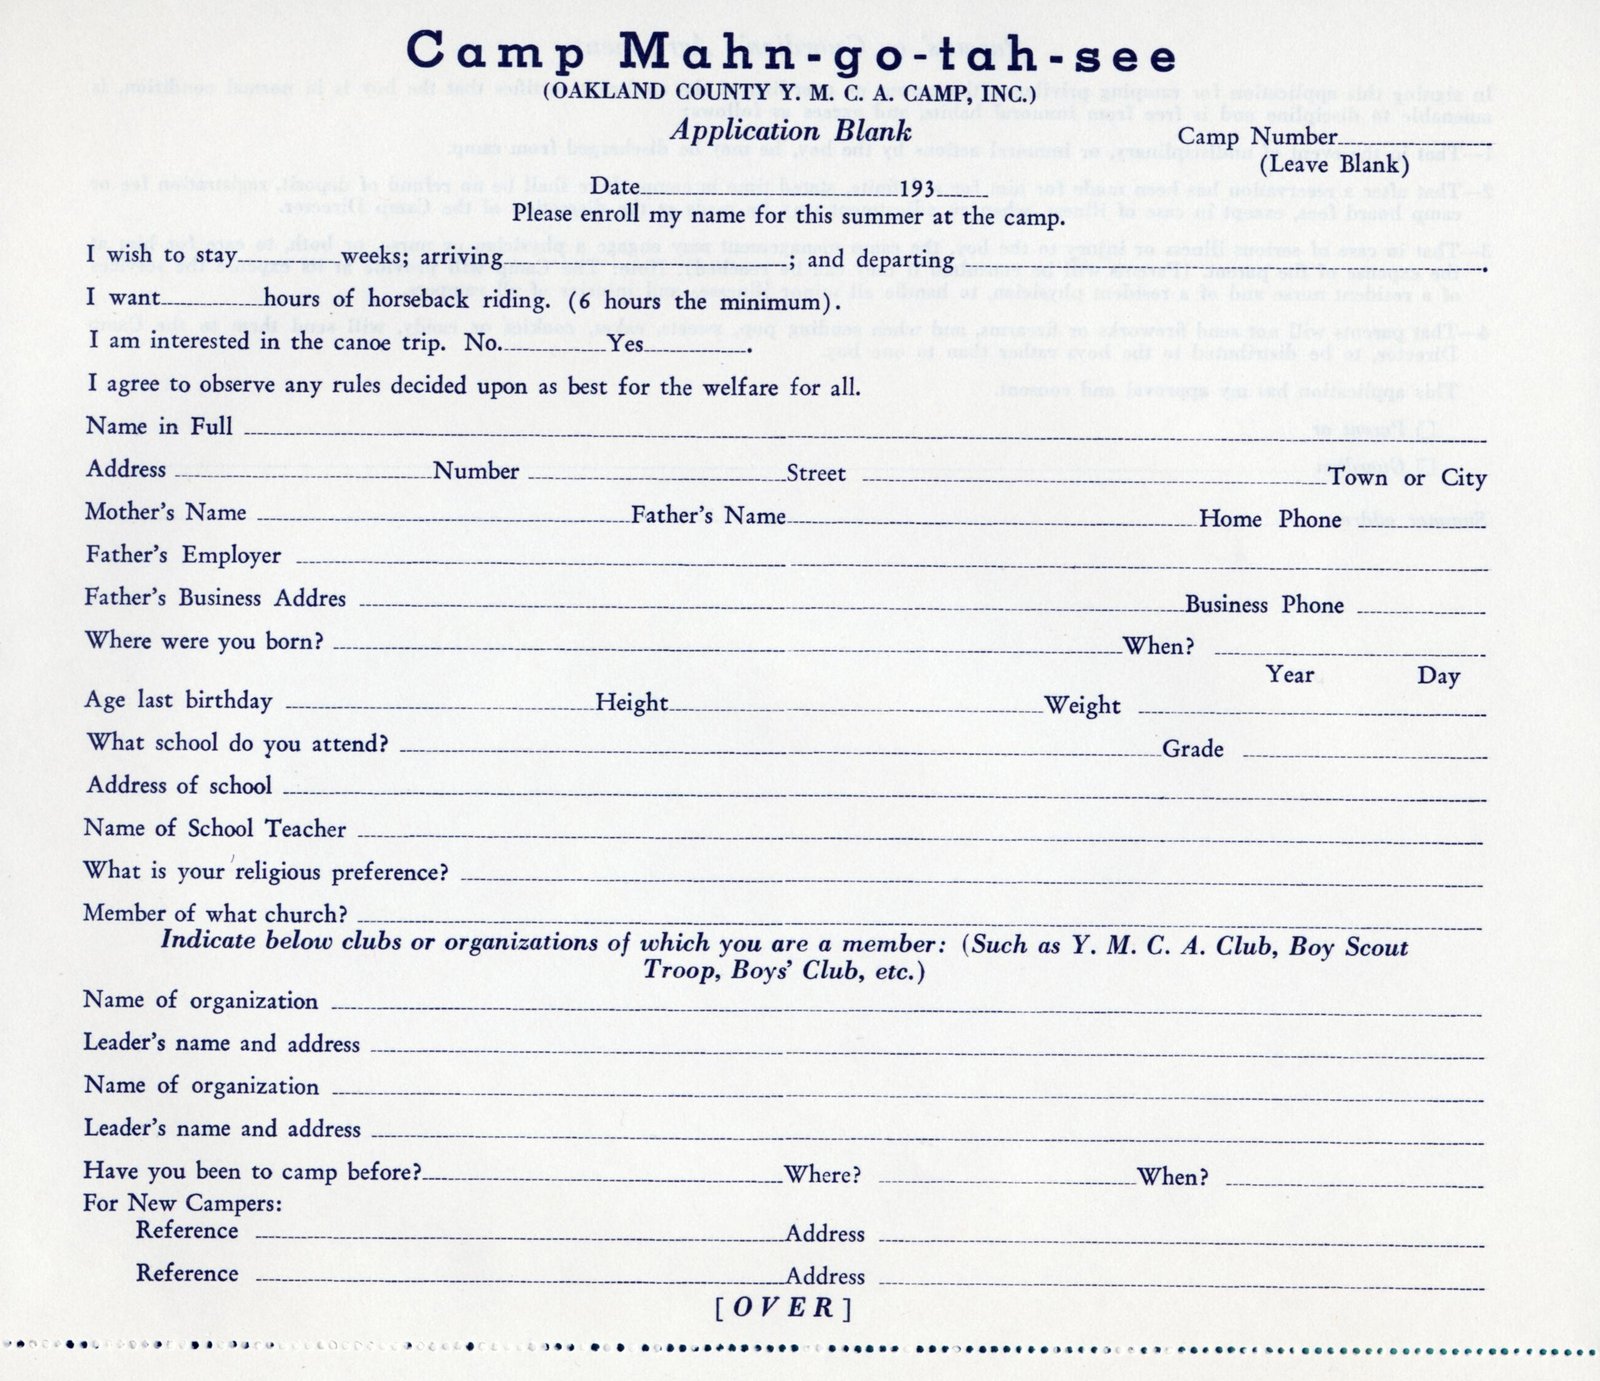 Camp Mahn-go-tah-see
(OAKLAND COUNTY Y. M. C. A. CAMP, INC.)
Application Blank
Camp Number
(Leave Blank)
Date 193
Please enroll my name for this summer at the camp.
I wish to stay weeks; arriving ; and departing .
I want hours of horseback riding. (6 hours the minimum).
I am interested in the canoe trip. No. Yes .
I agree to observe any rules decided upon as best for the welfare for all.
Name in Full
Address Number Street Town or City
Mother's Name Father's Name Home Phone
Father's Employer
Father's Business Addres Business Phone
Where were you born? When?
Year Day
Age last birthday Height Weight
What school do you attend? Grade
Address of school
Name of School Teacher
What is your religious preference?
Member of what church?
Indicate below clubs or organizations of which you are a member: (Such as Y. M. C. A. Club, Boy Scout
Troop, Boys' Club, etc.)
Name of organization
Leader's name and address
Name of organization
Leader's name and address
Have you been to camp before? Where? When?
For New Campers:
Reference Address
Reference Address
[OVER]